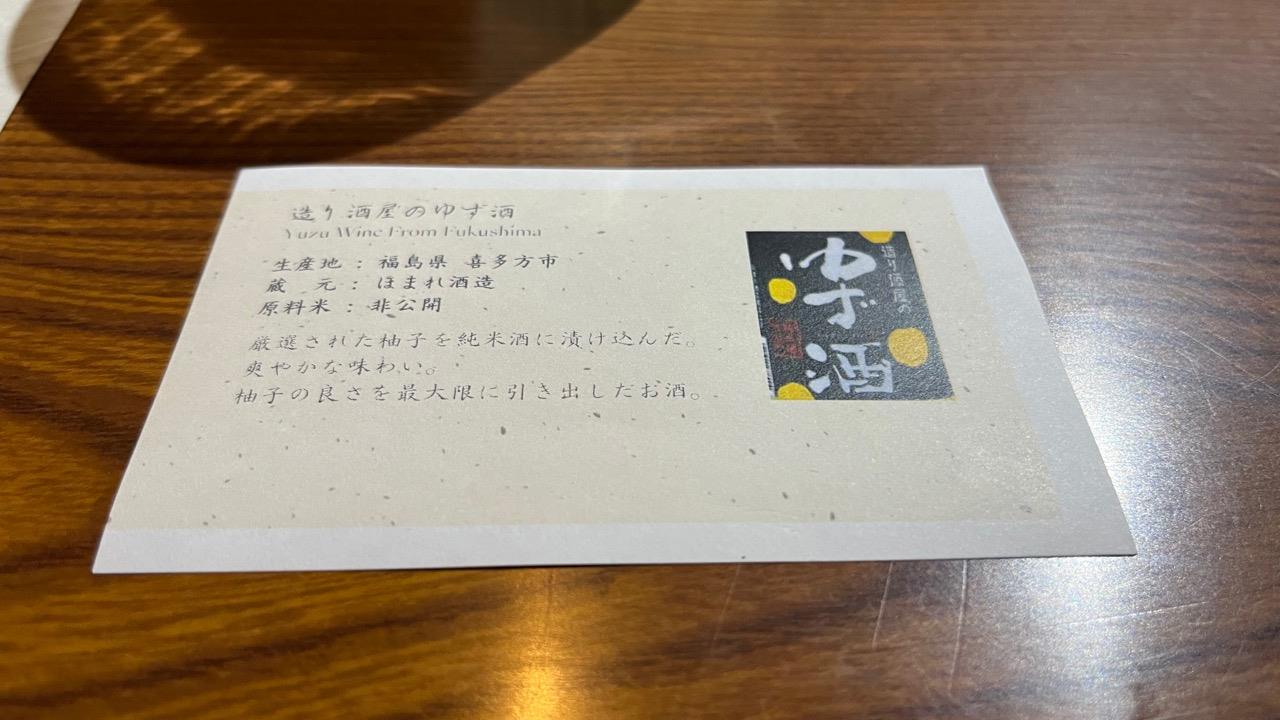 造り酒屋のゆず酒
Yuzu Wine From Fukushima
生産地 : 福島県 喜多方市
蔵 元 : ほまれ酒造
原料米 : 非公開
厳選された柚子を純米酒に漬け込んだ。
爽やかな味わい。
柚子の良さを最大限に引き出しだお酒。
造り酒屋の
ゆず酒